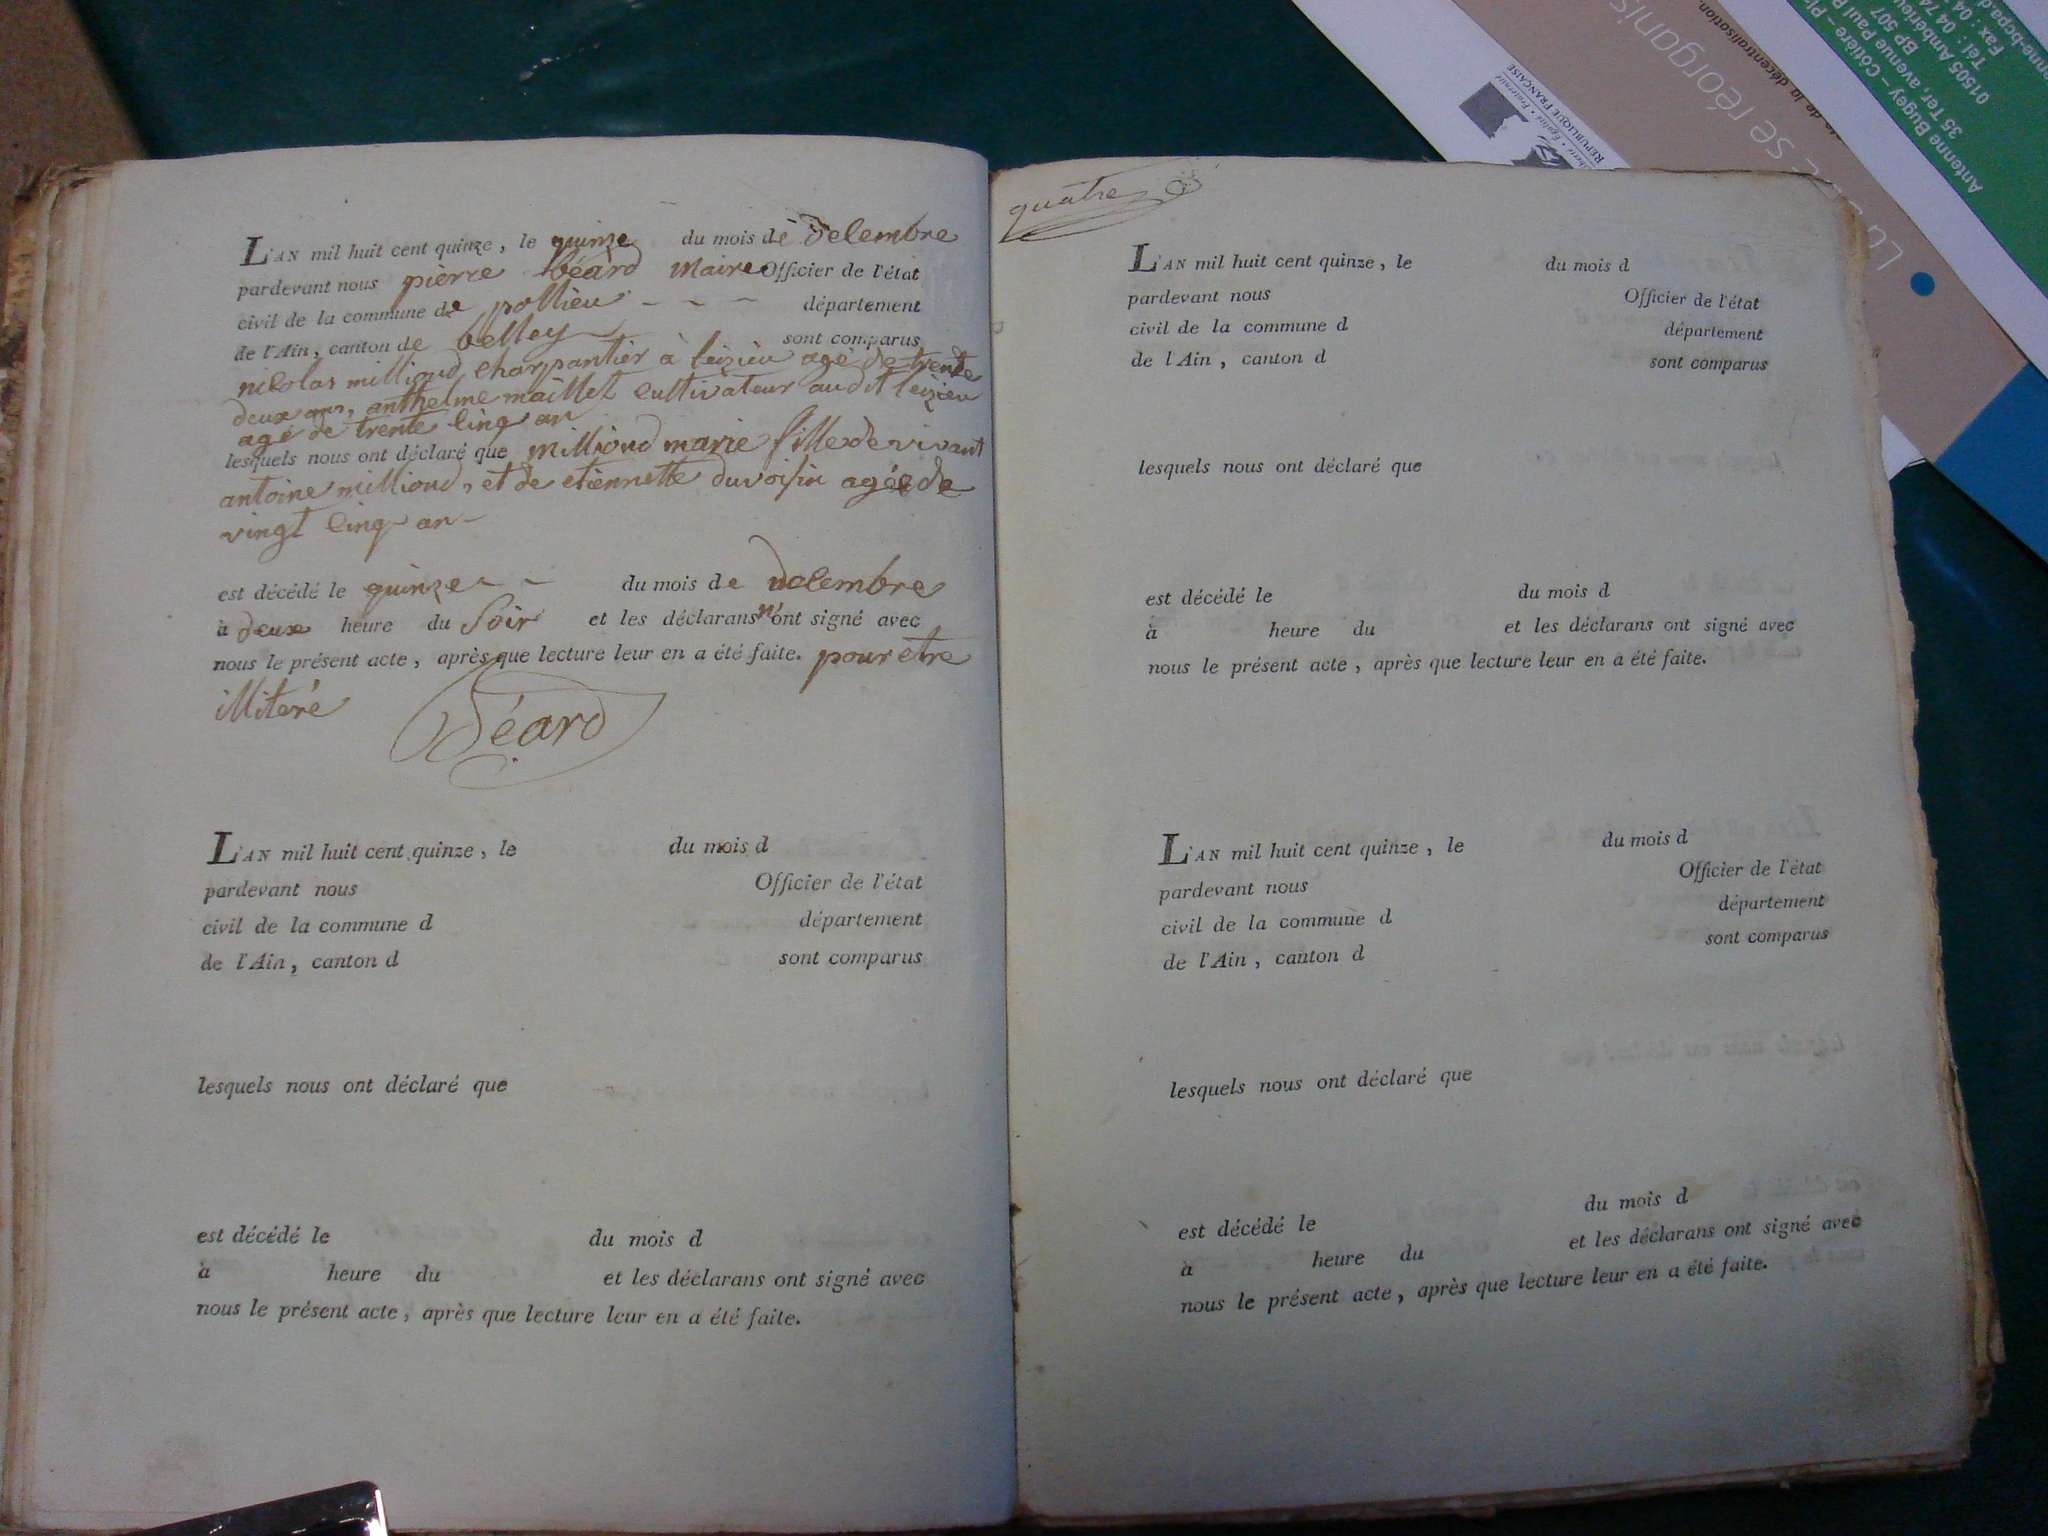 L'AN mil huit cent quinze, le quinze du mois de decembre
pardevant nous pierre béard maire Officier de l'état
civil de la commune de pollieu - - - département
de l'Ain, canton de belley sont comparus
nicolas millioud charpantier à leizieu agé de trente
deux ans, anthelme maillet cultivateur audit leizieu
agé de trente cinq an
lesquels nous ont déclaré que millioud marie fille de vivant
antoine millioud, et de etiennette duvoisin agée de
vingt cinq an -
est décédé le quinze - - du mois de decembre
à deux heure du soir et les déclarans n'ont signé avec
nous le présent acte, après que lecture leur en a été faite. pour etre
illiteré
Béard
L'AN mil huit cent quinze, le du mois d
pardevant nous Officier de l'état
civil de la commune d département
de l'Ain, canton d sont comparus
lesquels nous ont déclaré que
est décédé le du mois d
à heure du et les déclarans ont signé avec
nous le présent acte, après que lecture leur en a été faite.
quatre
L'AN mil huit cent quinze, le du mois d
pardevant nous Officier de l'état
civil de la commune d département
de l'Ain, canton d sont comparus
lesquels nous ont déclaré que
est décédé le du mois d
à heure du et les déclarans ont signé avec
nous le présent acte, après que lecture leur en a été faite.
L'AN mil huit cent quinze, le du mois d
pardevant nous Officier de l'état
civil de la commune d département
de l'Ain, canton d sont comparus
lesquels nous ont déclaré que
est décédé le du mois d
à heure du et les déclarans ont signé avec
nous le présent acte, après que lecture leur en a été faite.
RÉPUBLIQUE FRANÇAISE
se réorganis
de la décentralisation.
Antenne Bugey – Côtière – Pl
35 Ter, avenue Paul P
BP 507
01505 Ambérieu
Tél : 04 74
Fax : 04